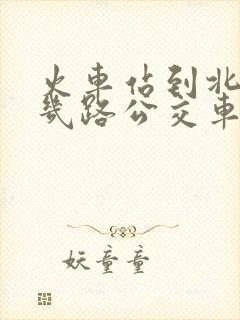 火車佔到北
幾路公交車
妖童童